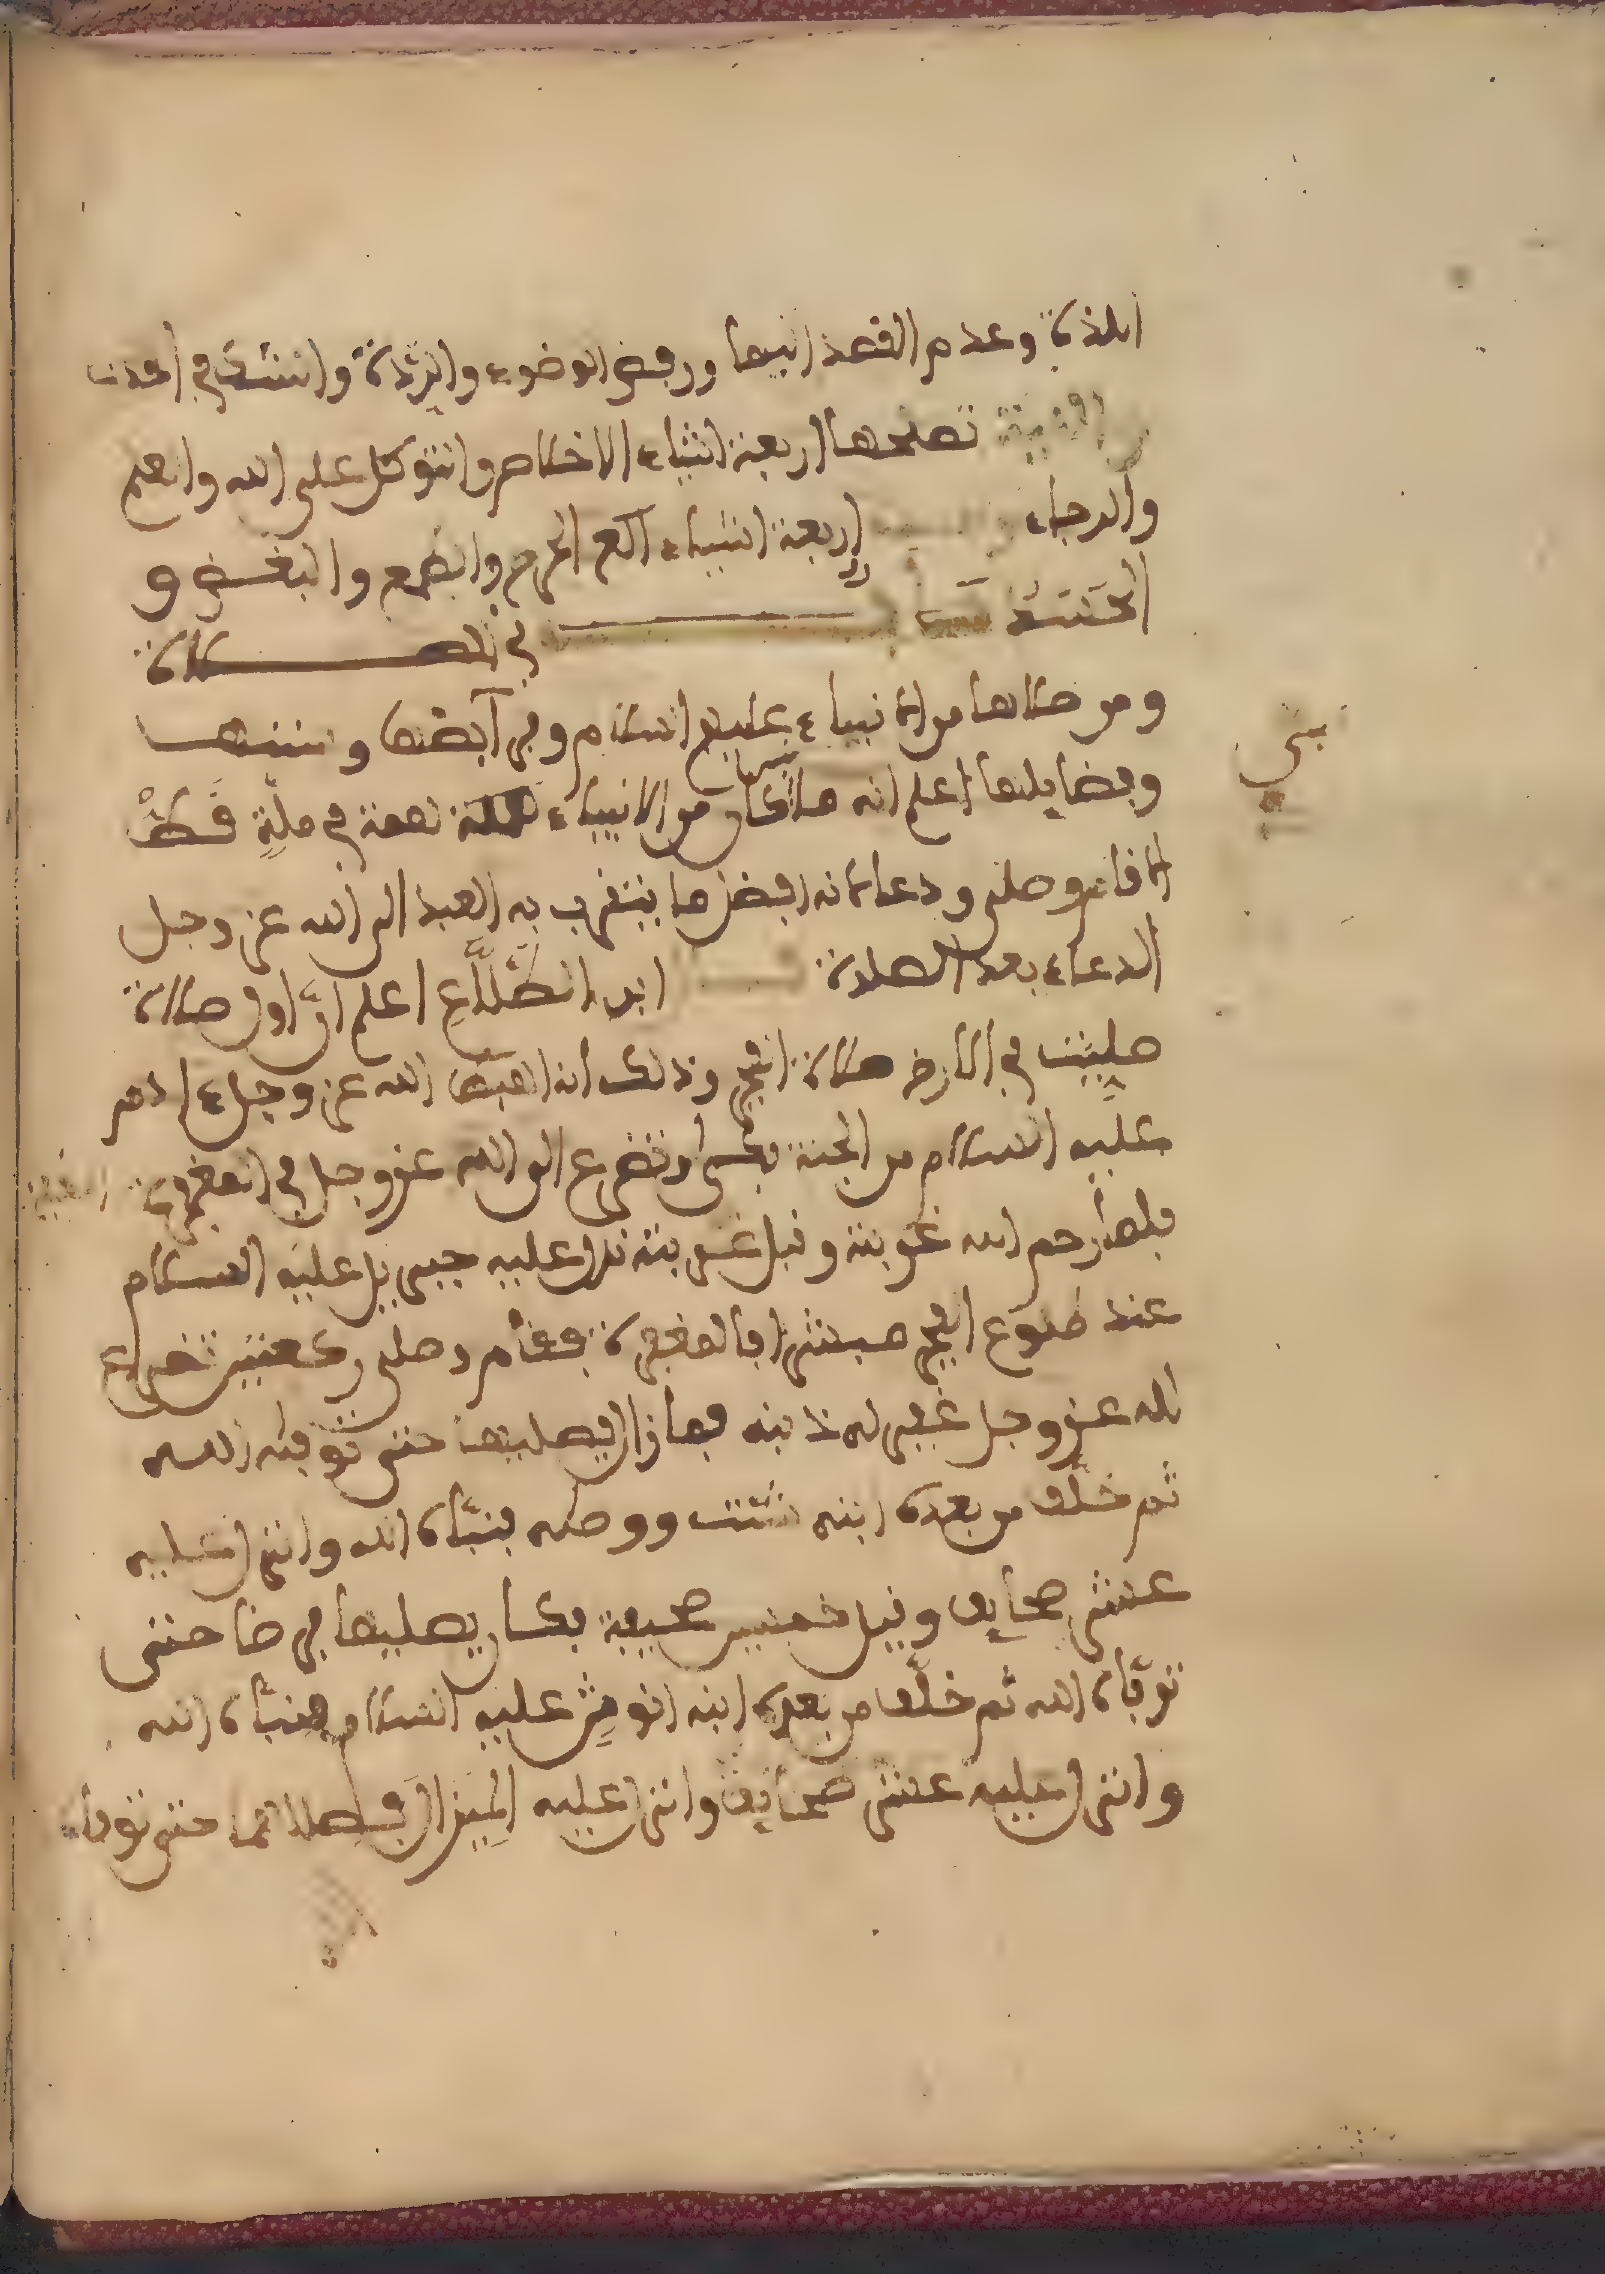 اللذة وعدم القصد اليها ورفض الوضوء والردة والشك في الحدث
تصلحها اربعة اشياء الاخلاص والتوكل على الله والعلم
والرجاء اربعة اشياء الحرص والطمع والبغض و
الحسد في الصلاة
ومن صلاها من الانبياء عليهم السلام وفرايضها وسننها
وفضايلها اعلم انه ما كان من الانبياء في ملة قط
الا قام وصلى ودعا لانه افضل ما يتقرب به العبد الى الله عز وجل
الدعاء بعد الصلاة ابن الطلاع اعلم ان اول صلاة
صليت في الارض صلاة الفجر وذلك انه اهبط الله عز وجل ادم
عليه السلام من الجنة بكى وتضرع الى الله عز وجل في
فلما رحم الله غربته وقبل توبته نزل عليه جبريل عليه السلام
عند طلوع الفجر فبشره بالمغفرة فقام وصلى ركعتين
لله عز وجل غفر له ذنبه فما زال يصليها حتى توفيه الله
ثم خلف من بعده ابنه شيث ووصيه فنباه الله وانزل عليه
عشر صحايف وقيل خمسين صحيفة فكان يصليها فرضا حتى
توفاه الله ثم خلف من بعده ابنه انوش عليه السلام فنباه الله
وانزل عليه عشر صحايف وانزل عليه الميزان حتى توفاه